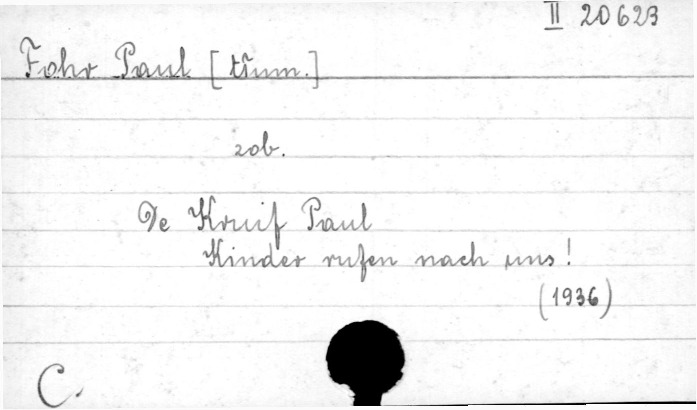 II 20623
Fohr Paul [tłum.]
zob.
De Kruif Paul
Kinder rufen nach uns!
(1936)
C.